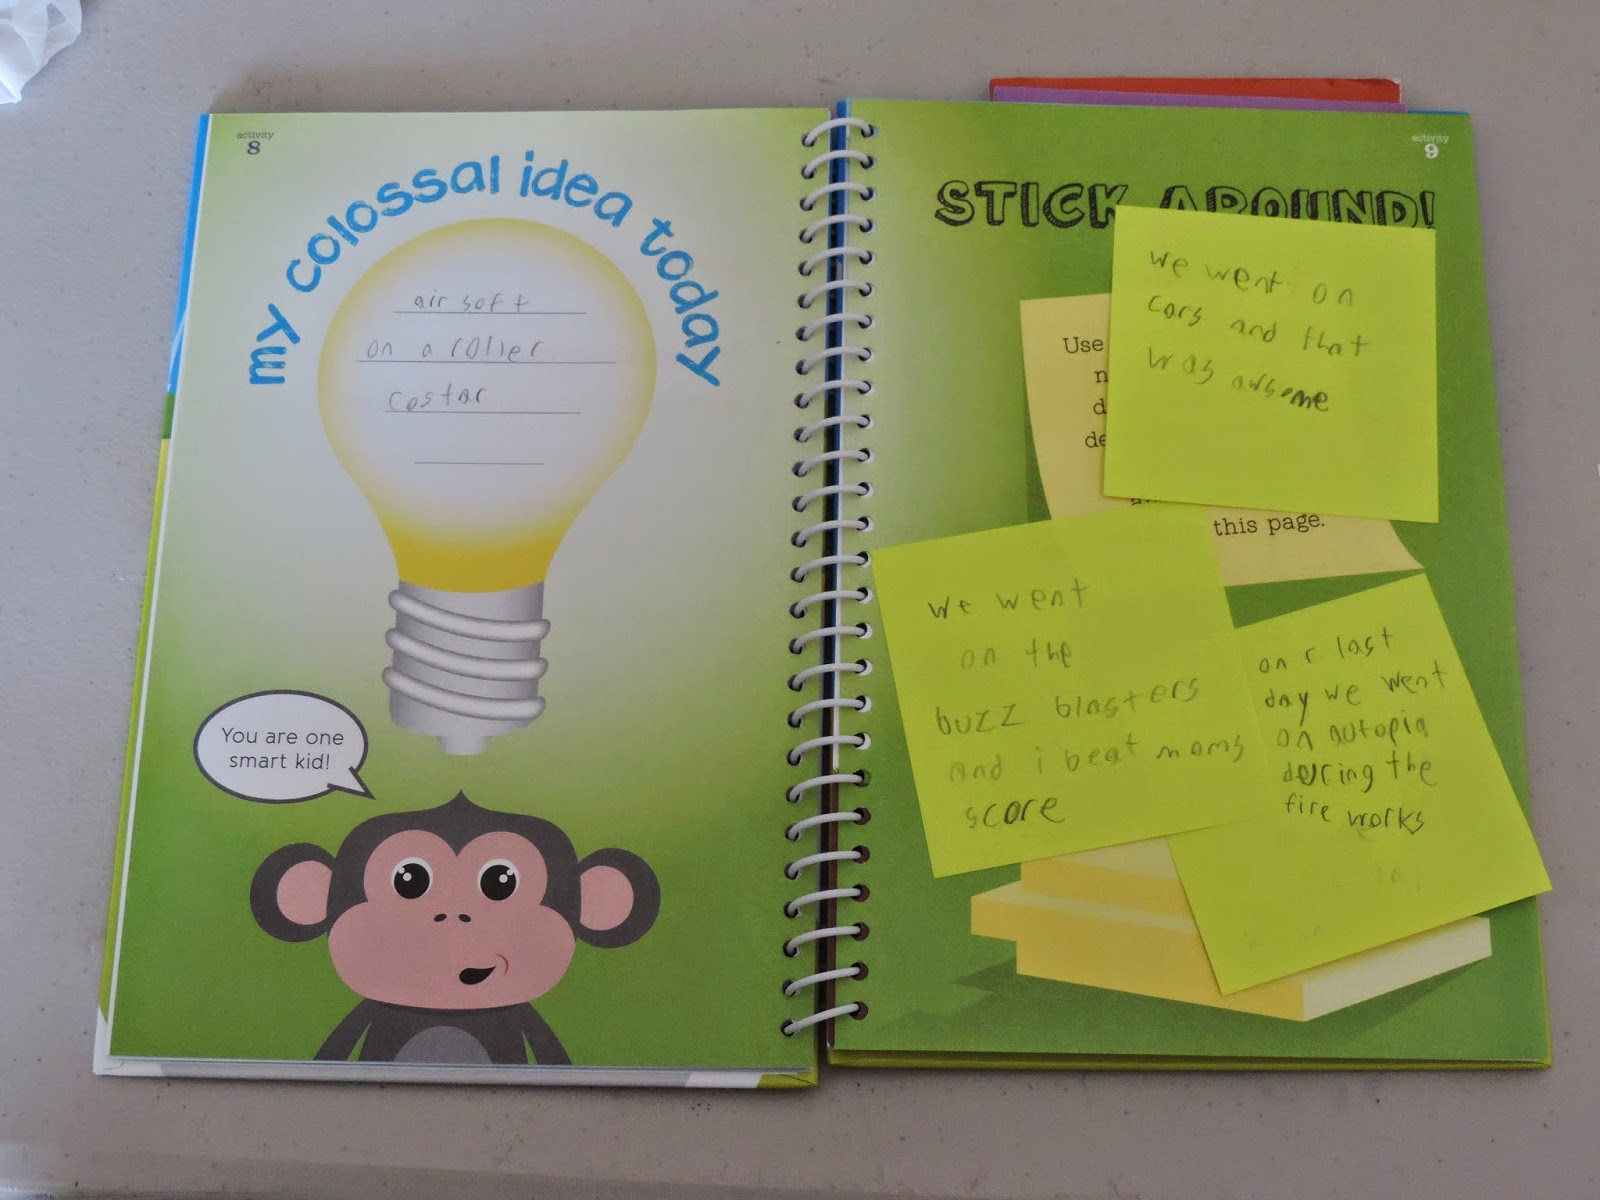 activity
8
my colossal idea today
air soft
on a roller
costar
You are one
smart kid!
activity
9
STICK AROUND!
we went on
cars and that
was awsome
Use
this page.
we went
on the
buzz blasters
and i beat moms
score
on r last
day we went
on autopia
during the
fire works